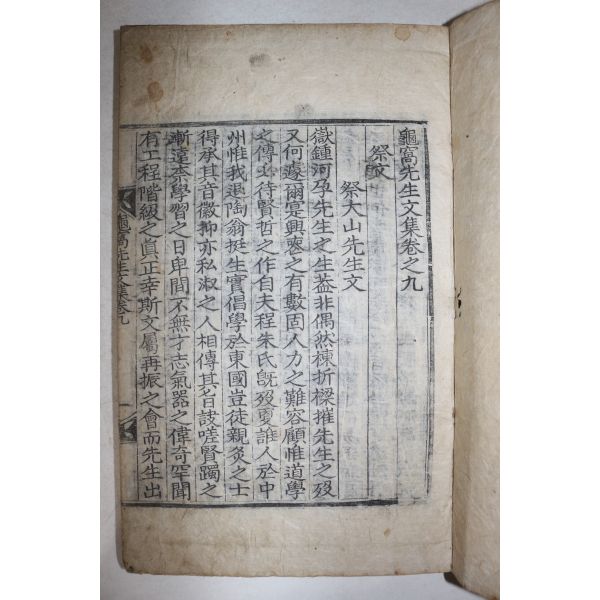 龜窩先生文集卷之九
祭文
祭大山先生文
嶽鍾河孕先生之生葢非偶然棟折樑摧先生之歿
又何遽爾寔興喪之有數固人力之難容顧惟道學
之傳必待賢哲之作自夫程朱氏旣歿夐誰人於中
州惟我退陶翁挺生實倡學於東國豈徒親炙之士
得承其音徽抑亦私淑之人相傳其旨訣嗟賢躅之
漸遠柰學習之日卑間不無才志氣器之偉奇罕聞
有工程階級之眞正幸斯文屬再振之會而先生出
龜窩先生文集卷九 一